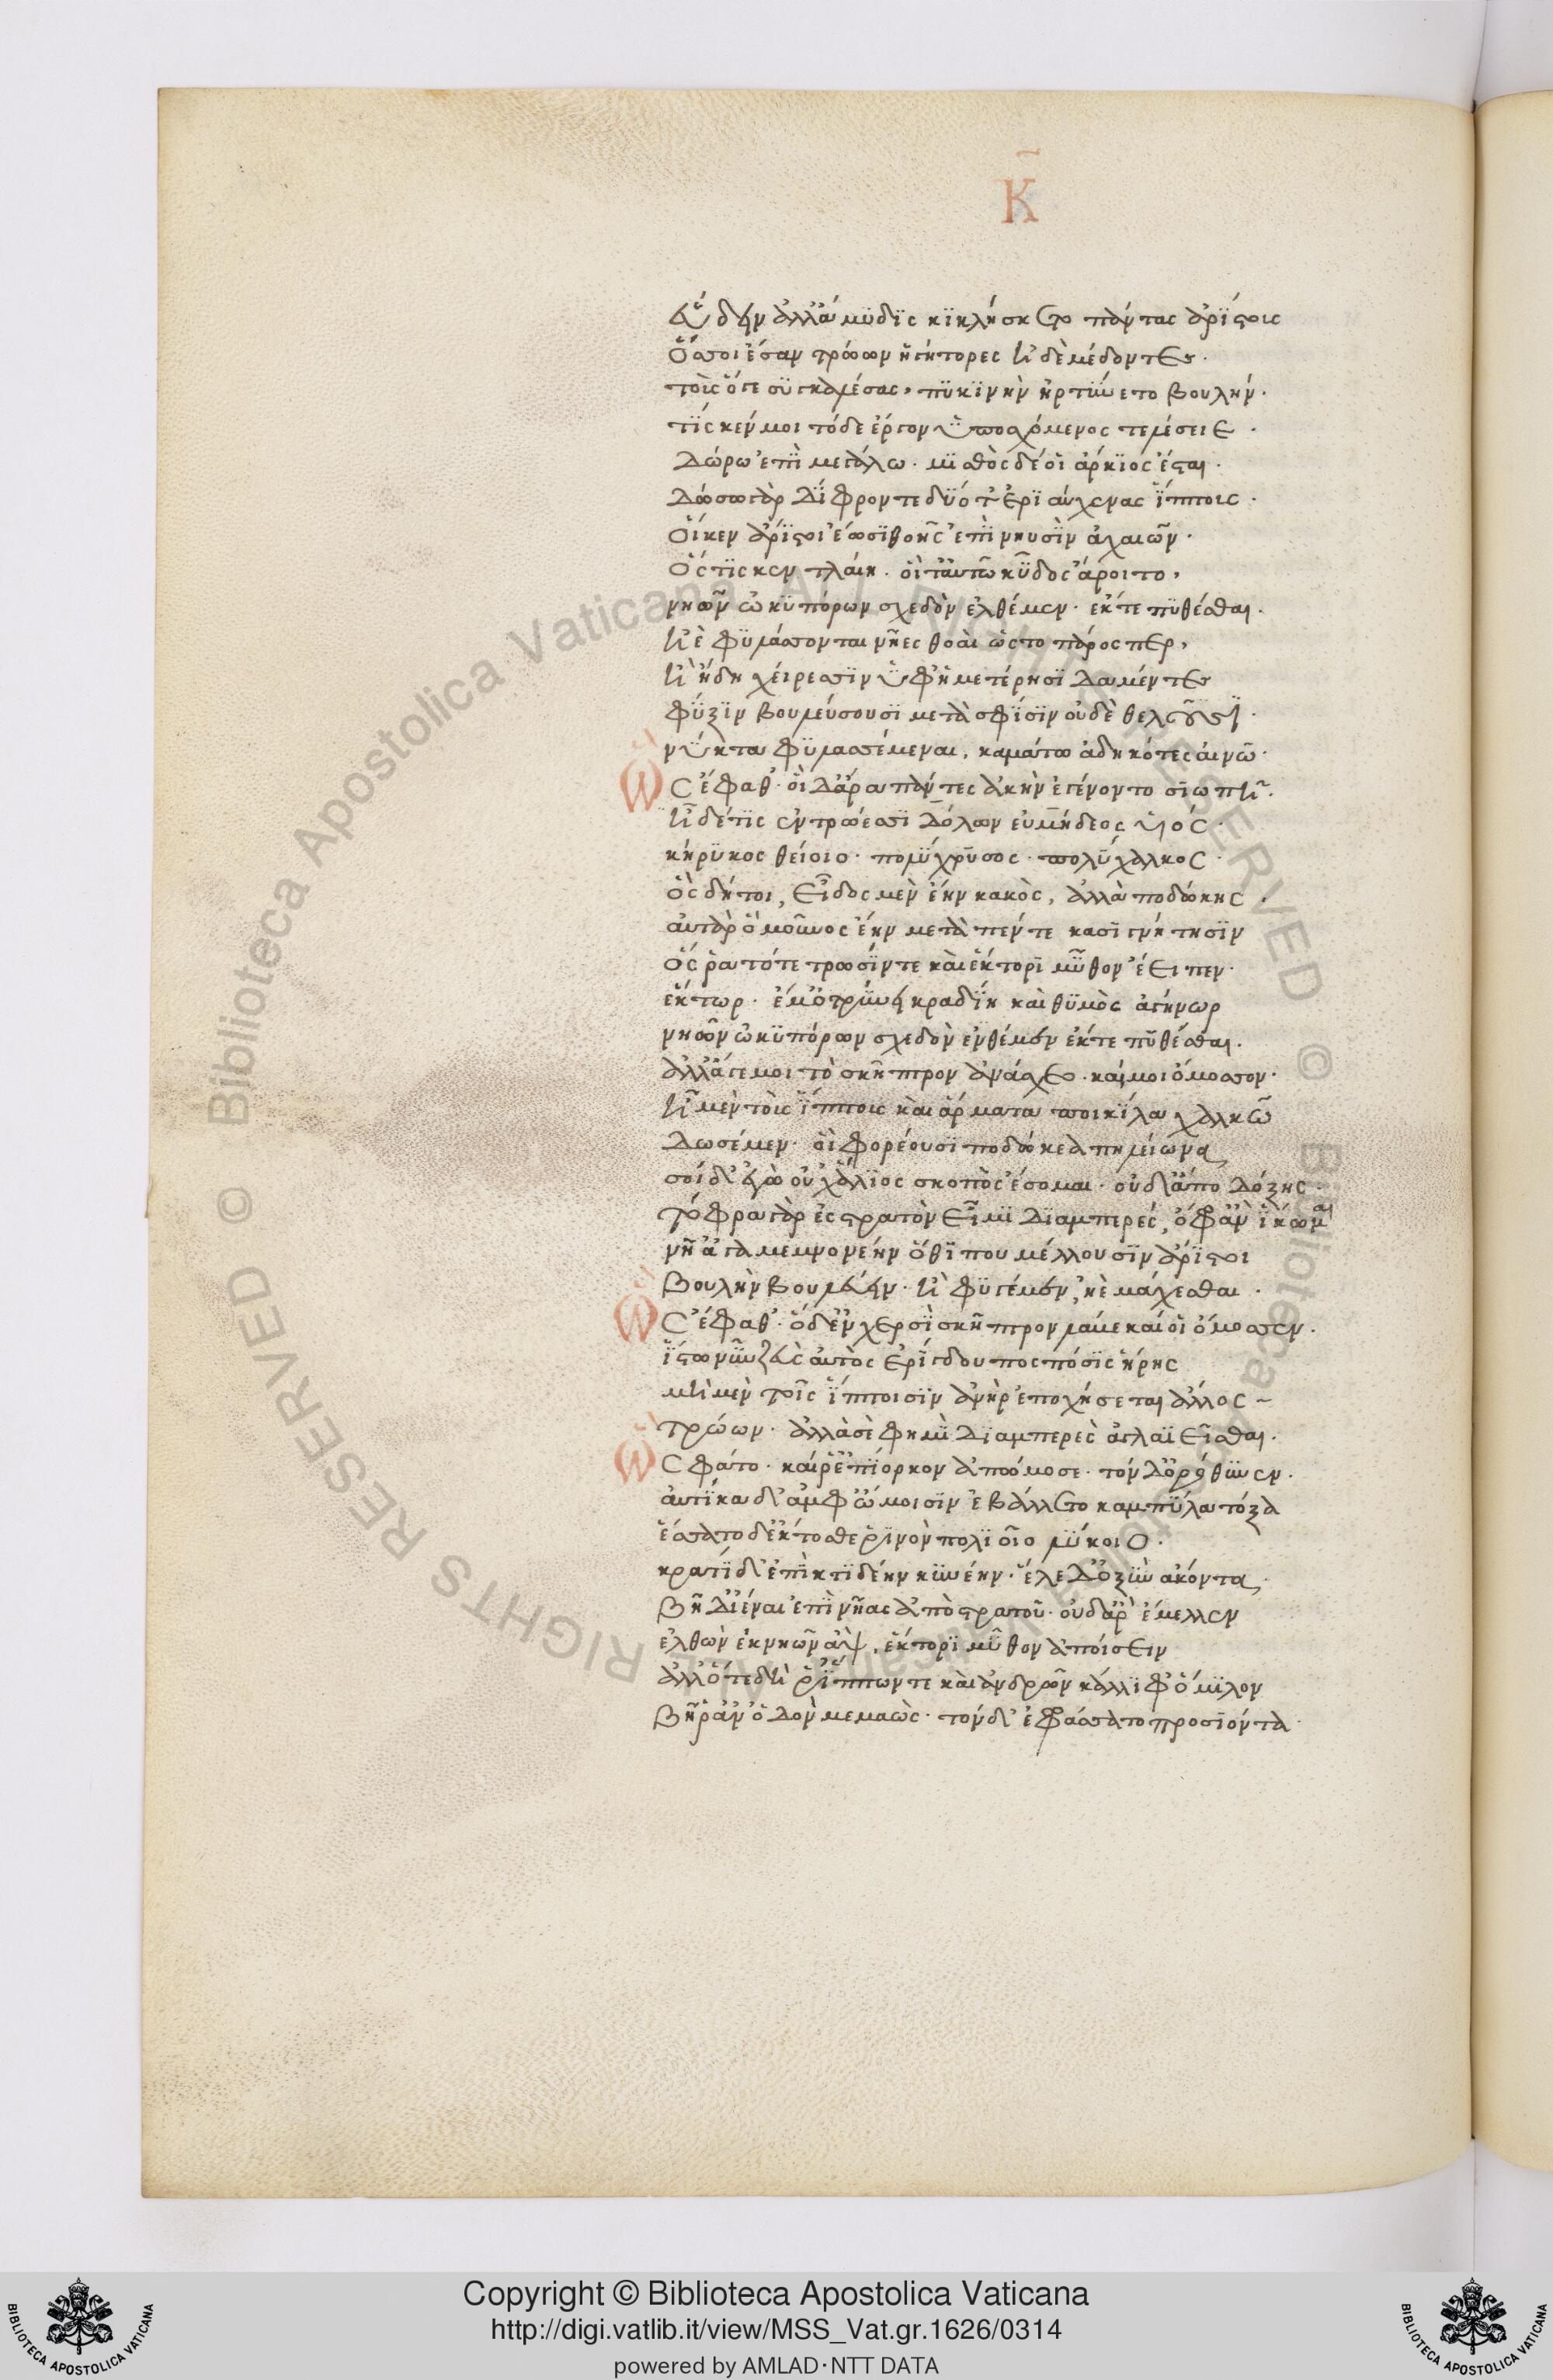 Κ̄
εὕδειν ἀλλ' ἅμυδϊς κϊκλήσκετο πάντας ἀρΐστοις
ὅσσοι ἔσαν τρώων ἡγήτορες ἠδὲ μέδοντες·
τοὺς ὅγε συγκαλέσας, πυκϊνὴν ἠρτύνετο βουλήν·
τΐς κέν μοι τόδε ἔργον ὑποσχόμενος τελέσειε·
δώρω ἐπῒ μεγάλω· μϊσθὸς δέ οἱ ἄρκϊος ἔσται·
δώσω γὰρ δΐφρον τε δύό τ' ἐρϊαύχενας ἵπποις·
οἵ κεν ἄρϊστοι ἔωσϊ θοῇς ἐπῒ νηυσῒν ἀχαιῶν·
ὅς τϊς κεν τλαίη· οἷ τ' αὐτῶ κῦδος ἄροιτο,
νηῶν ὠκυπόρων σχεδὸν ἐλθέμεν· ἔκ τε πυθέσθαι·
ἠὲ φυλάσσονται νῆες θοαὶ ὡς το πάρος περ,
ἠ ἤδη χείρεσσϊν ὑφ' ἡμετέρησϊ δαμέντες
φύξϊν βουλεύσουσϊ μετὰ σφΐσϊν οὐδὲ θέλουσϊ·
νύκτα φυλασσέμεναι, καμάτω ἀδηκότες αἰνῶ·
Ὣς ἔφαθ'· οἱ δ' ἄρα πάντες ἀκὴν ἐγένοντο σϊωπῆ·
ἦν δέ τϊς ἐν τρώεσσϊ δόλων εὐμήδεος υἱός·
κήρυκος θείοιο· πολύχρυσος· πολύχαλκος·
ὃς δή τοι, εἶδος μὲν ἔην κακὸς, ἀλλὰ ποδώκης·
αὐτὰρ ὁ μοῦνος ἔην μετὰ πέντε κασϊγνήτησϊν
ὅς ῥα τότε τρωσΐν τε καὶ ἕκτορϊ μῦθον ἔειπεν·
ἕκτωρ· ἔμ' ὀτρύνει κραδΐη καὶ θυμὸς ἀγήνωρ
νηῶν ὠκυπόρων σχεδὸν ἐνθέμεν ἔκ τε πυθέσθαι·
ἀλλ' ἄγε μοι τὸ σκῆπτρον ἀνάσχεο· καί μοι ὄμοσσον·
ἦ μὲν τοὺς ἵππους καὶ ἅρματα ποικΐλα χαλκῶ
δωσέμεν· οἳ φορέουσϊ ποδώκεα πηλείωνα
σοί δ' ἐγὼ οὐχ ἅλϊος σκοπὸς ἔσομαι· οὐδ' ἀπο δόξης·
τόφρα γὰρ ἐς στρατὸν εἶμϊ δϊαμπερές, ὄφρ' ἂν ἵκωμαι
νῆ' ἀγαμεμνονέην ὅθϊ που μέλλουσϊν ἄρϊστοι
βουλὴν βουλεύειν· ἠ φυγέμεν, ἠὲ μάχεσθαι·
Ὣς ἔφαθ'· ὁ δ' ἐν χερσῒ σκῆπτρον λάβε καί οἱ ὄμοσσεν·
ἵστω νῦν ζεὺς αὐτὸς ἐρΐγδουπος πόσϊς ἥρης
μὴ μὲν τοῖς ἵπποισϊν ἀνὴρ ἐποχήσεται ἄλλος
τρώων· ἀλλά σε φημῒ δϊαμπερὲς ἀγλαϊεῖσθαι·
Ὣς φάτο· καί ῥ' ἐπΐορκον ἀπώμοσε· τόν δ' ὀρόθυνεν·
αὐτΐκα δ' ἀμφ' ὤμοισϊν ἐβάλλετο καμπύλα τόξα
ἕσσατο δ' ἔκτοσθε ῥϊνὸν πολϊοῖο λύκοιο·
κρατΐ δ' ἐπῒ κτϊδέην κυνέην· ἕλε δ' ὀξὺν ἄκοντα
βῆ δ' ἰέναι ἐπῒ νῆας ἀπὸ στρατοῦ· οὐδ' ἄρ' ἔμελλεν
ἐλθὼν ἐκ νηῶν ἂψ, ἕκτορϊ μῦθον ἀποίσειν
ἀλλ' ὅτε δή ῥ' ἵππων τε καὶ ἀνδρῶν κάλλϊφ' ὅμϊλον
βῆ ῥ' ἀν' ὁδὸν μεμαὼς· τόν δ' ἐφράσσατο προσϊόντα·
Copyright © Biblioteca Apostolica Vaticana
http://digi.vatlib.it/view/MSS_Vat.gr.1626/0314
powered by AMLAD·NTT DATA